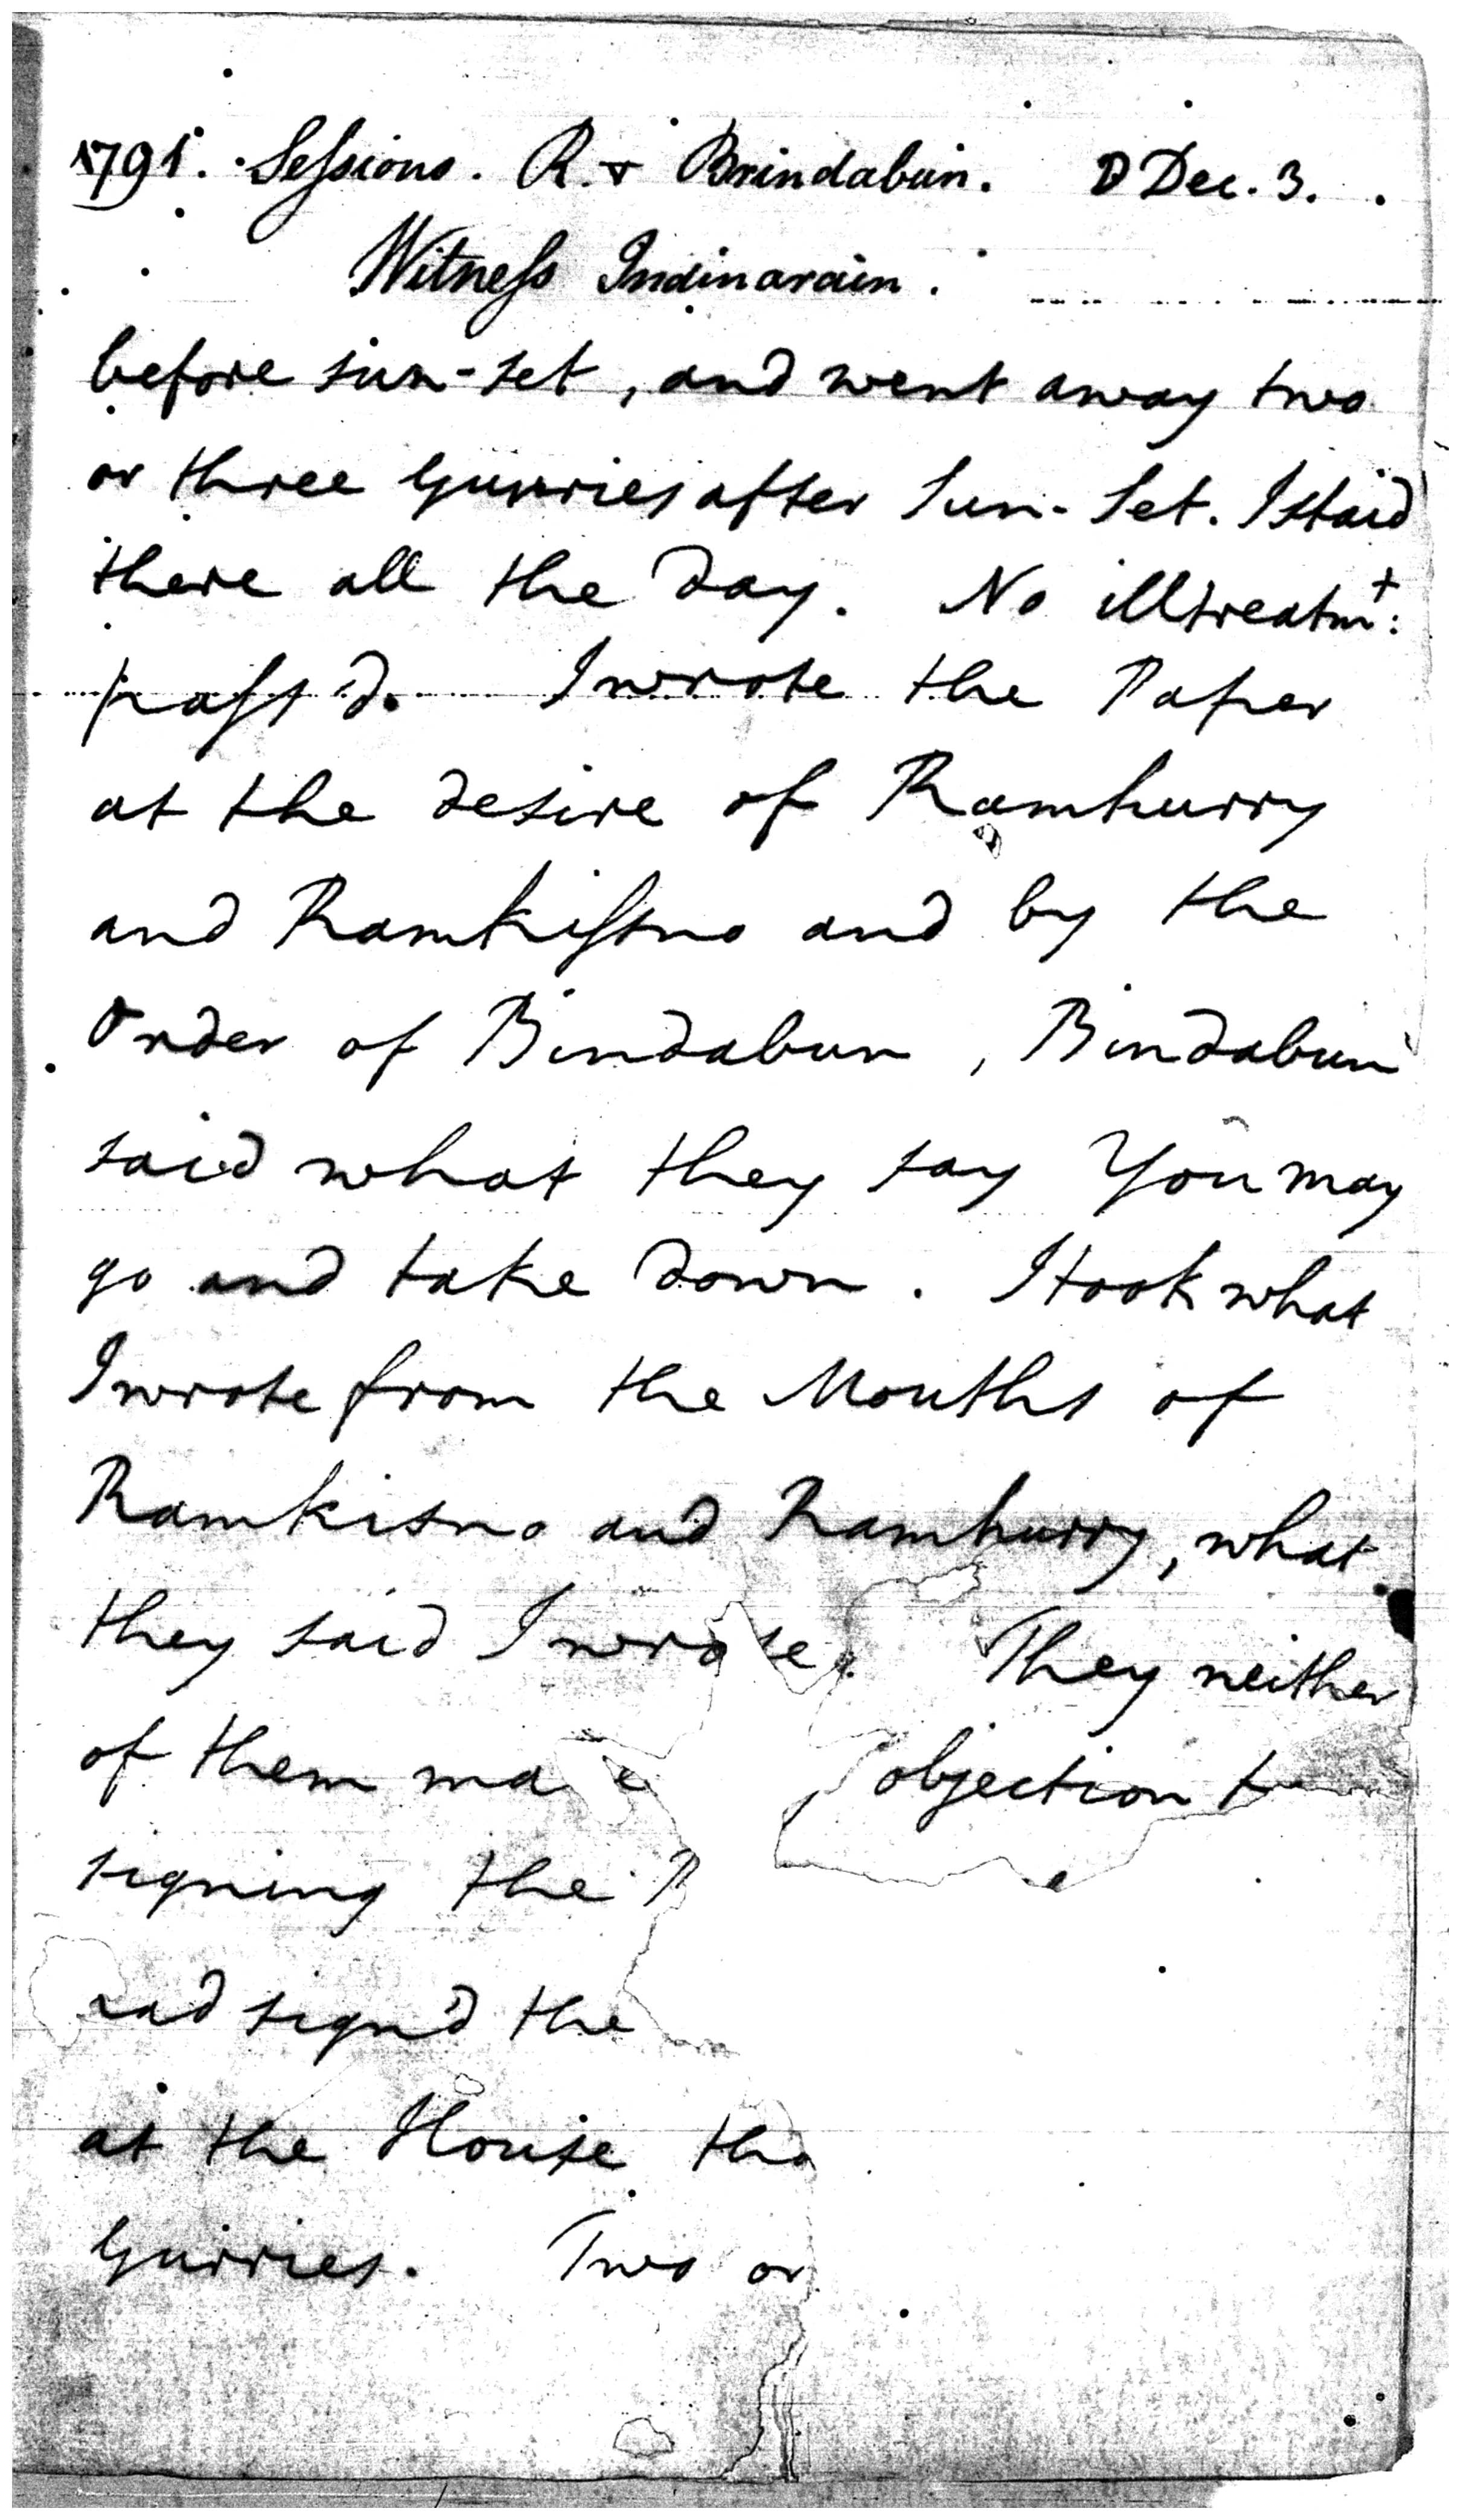 1791. Sessions. R. v Brindabun. D Dec. 3.
Witness Indinarain.
before sun-set, and went away two
or three Gurries after Sun-Set. I staid
there all the day. No illtreatmt:
pass'd. I wrote the Paper
at the desire of Ramhurry
and Ramkissno and by the
Order of Bindabun, Bindabun
said what they say You may
go and take down. I took what
I wrote from the Mouths of
Ramkisno and Ramhurry, what
they said I wrote. They neither
of them ma e objection
signing the
had sign'd the
at the House
Gurries. Two or